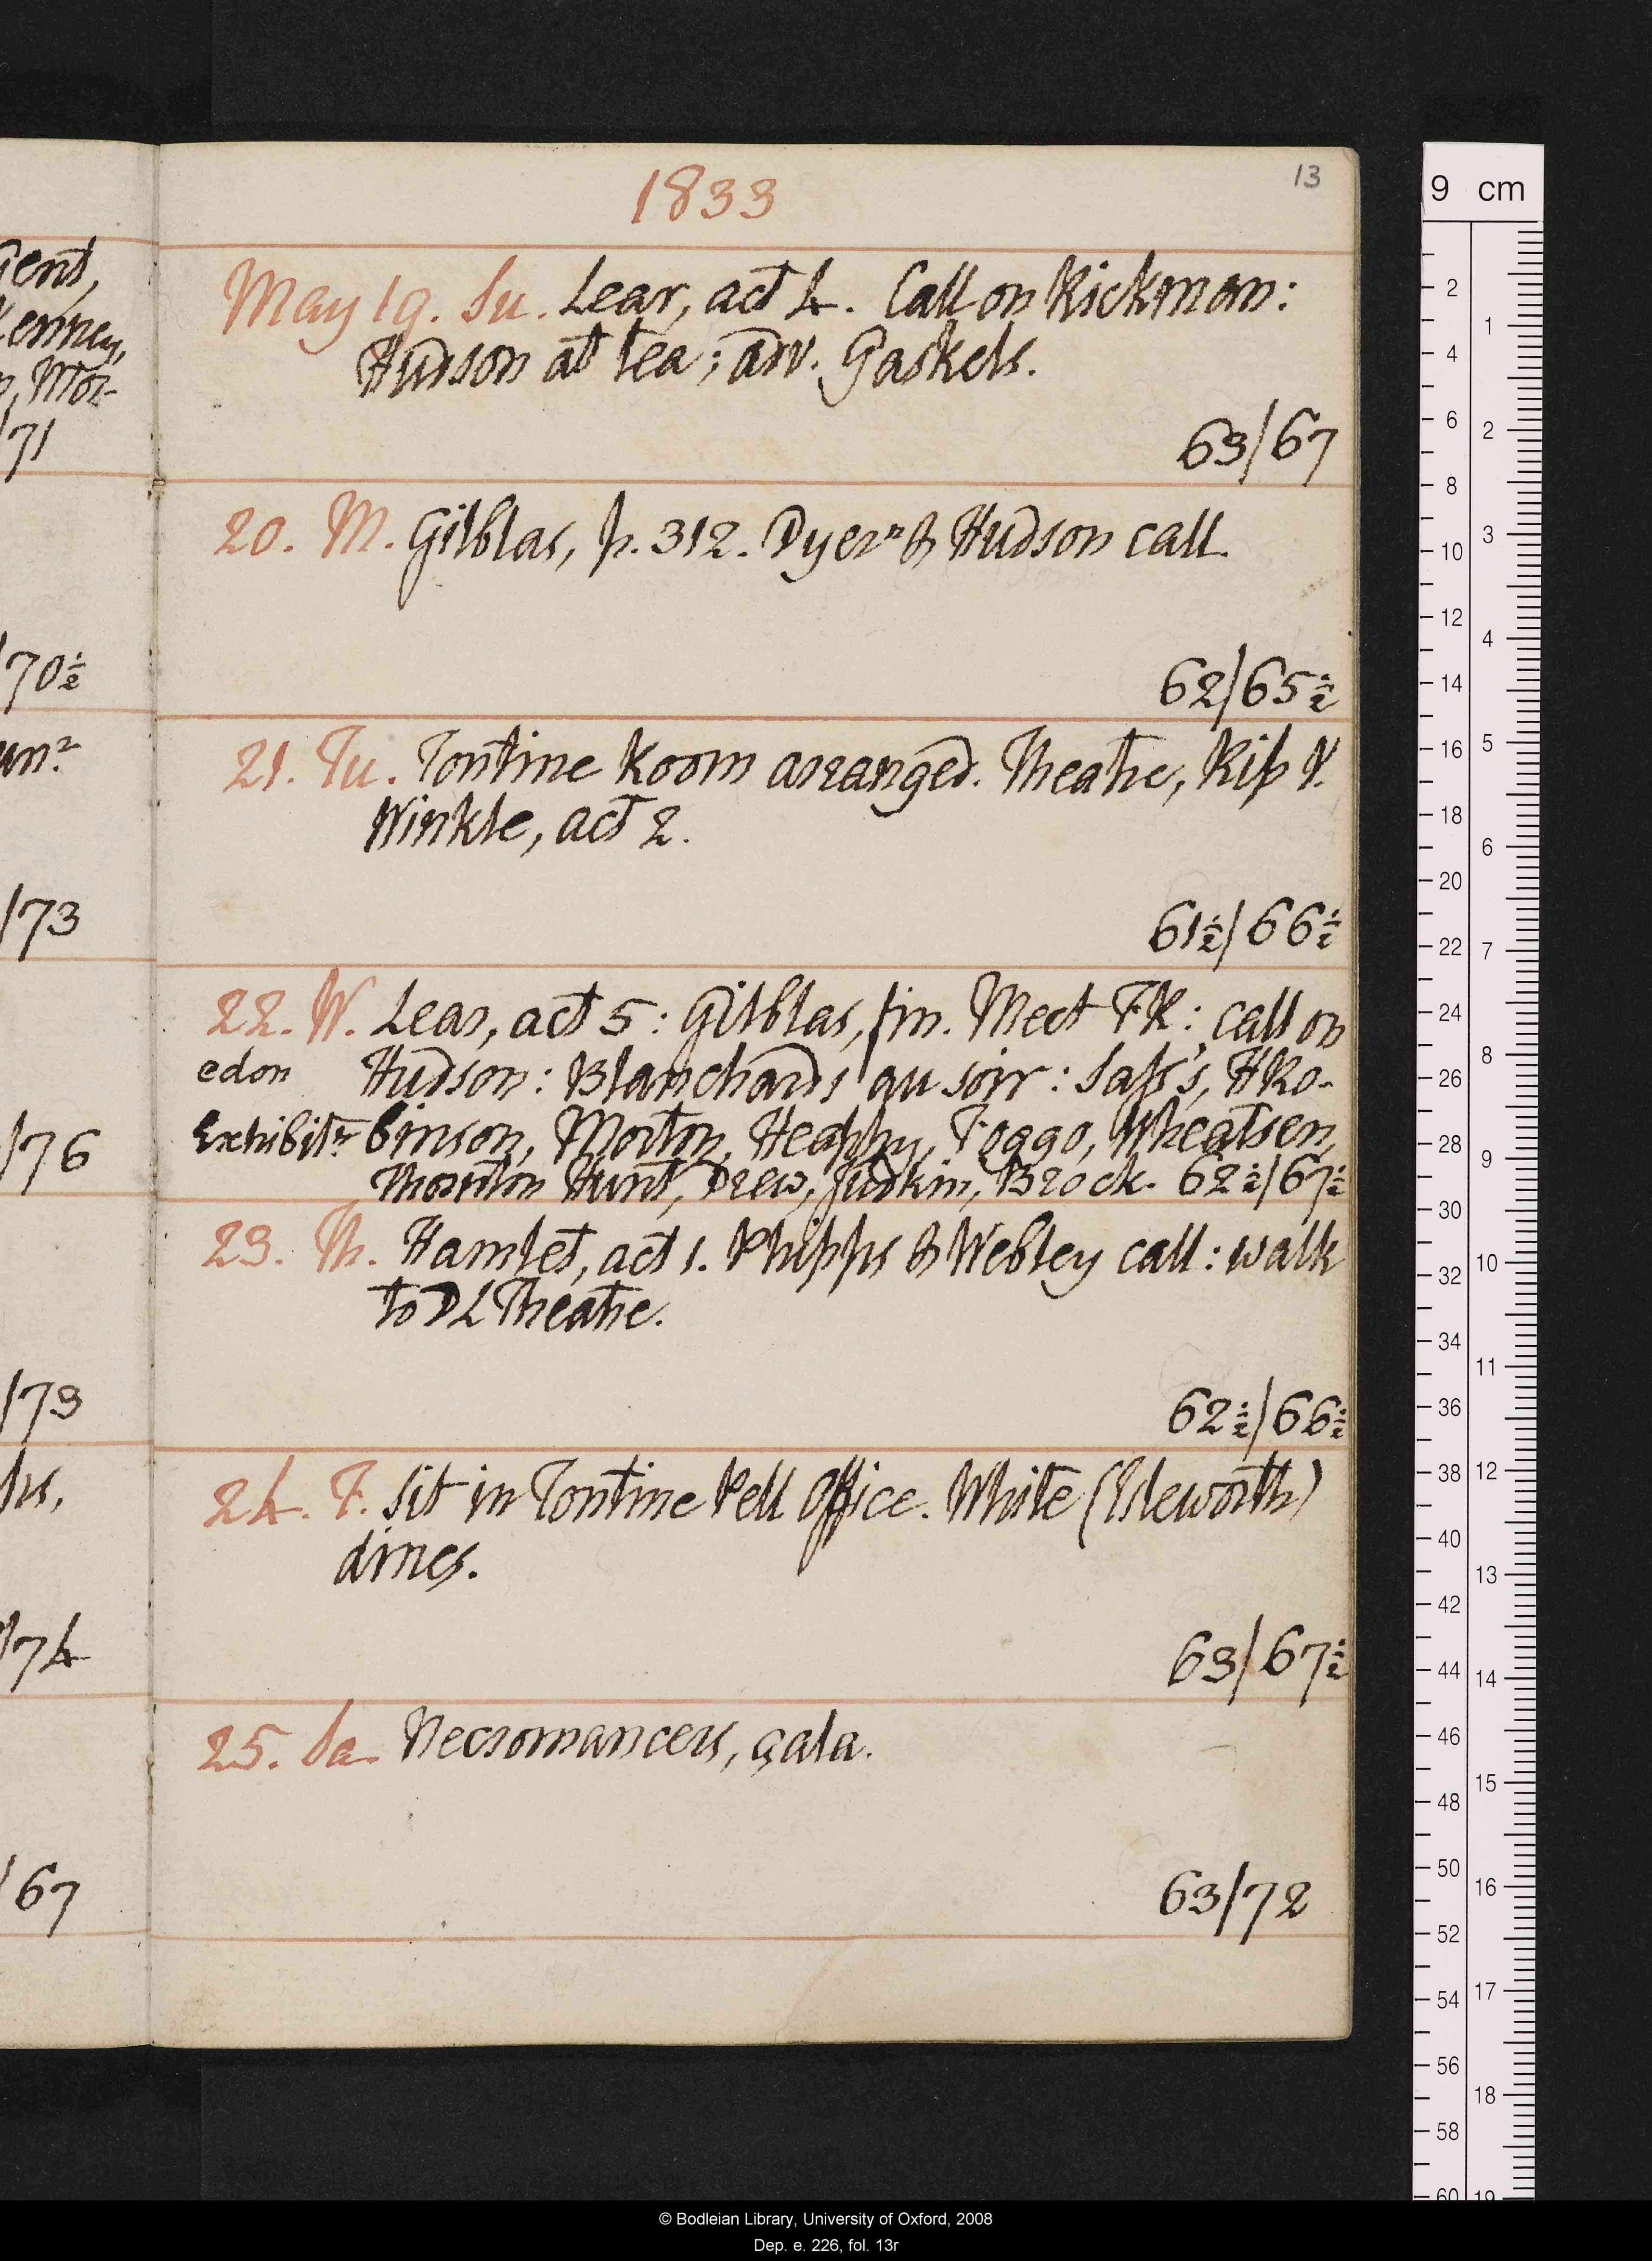 Gent,
Kenney,
n, Mor-
/71
/70½
un^r
/73
/76
/73
hs,
/74
/67
13
1833
May 19. Su. Lear, act 4. Call on Rickman:
Hudson at tea; adv. Gaskels.
63/67
20. M. Gilblas, p. 312. Dyer^n & Hudson call.
62/65½
21. Tu. Tontine Room arranged. Theatre, Rip V.
Winkle, act 2.
61½/66½
22. W. Lear, act 5: Gilblas, fin. Meet FK: call on
edon Hudson: Blanchards au soir: Sass's, HRo-
Exhibit^n binson, Morton, Heaphy, Foggo, Wheatsen,
Thornton Hunt, Drew, Judkin, Brock. 62½/67½
23. Th. Hamlet, act 1. Phipps & Webley call: walk
to DL Theatre.
62½/66½
24. F. Sit in Tontine Pell Office. White (Isleworth)
dines.
63/67½
25. Sa. Necromancers, gala.
63/72
9 cm
2
1
4
6
2
8
10
3
12
4
14
16
5
18
6
20
22
7
24
8
26
28
9
30
32
10
34
11
36
38
12
40
13
42
44
14
46
15
48
50
16
52
54
17
56
18
58
60
19
© Bodleian Library, University of Oxford, 2008
Dep. e. 226, fol. 13r